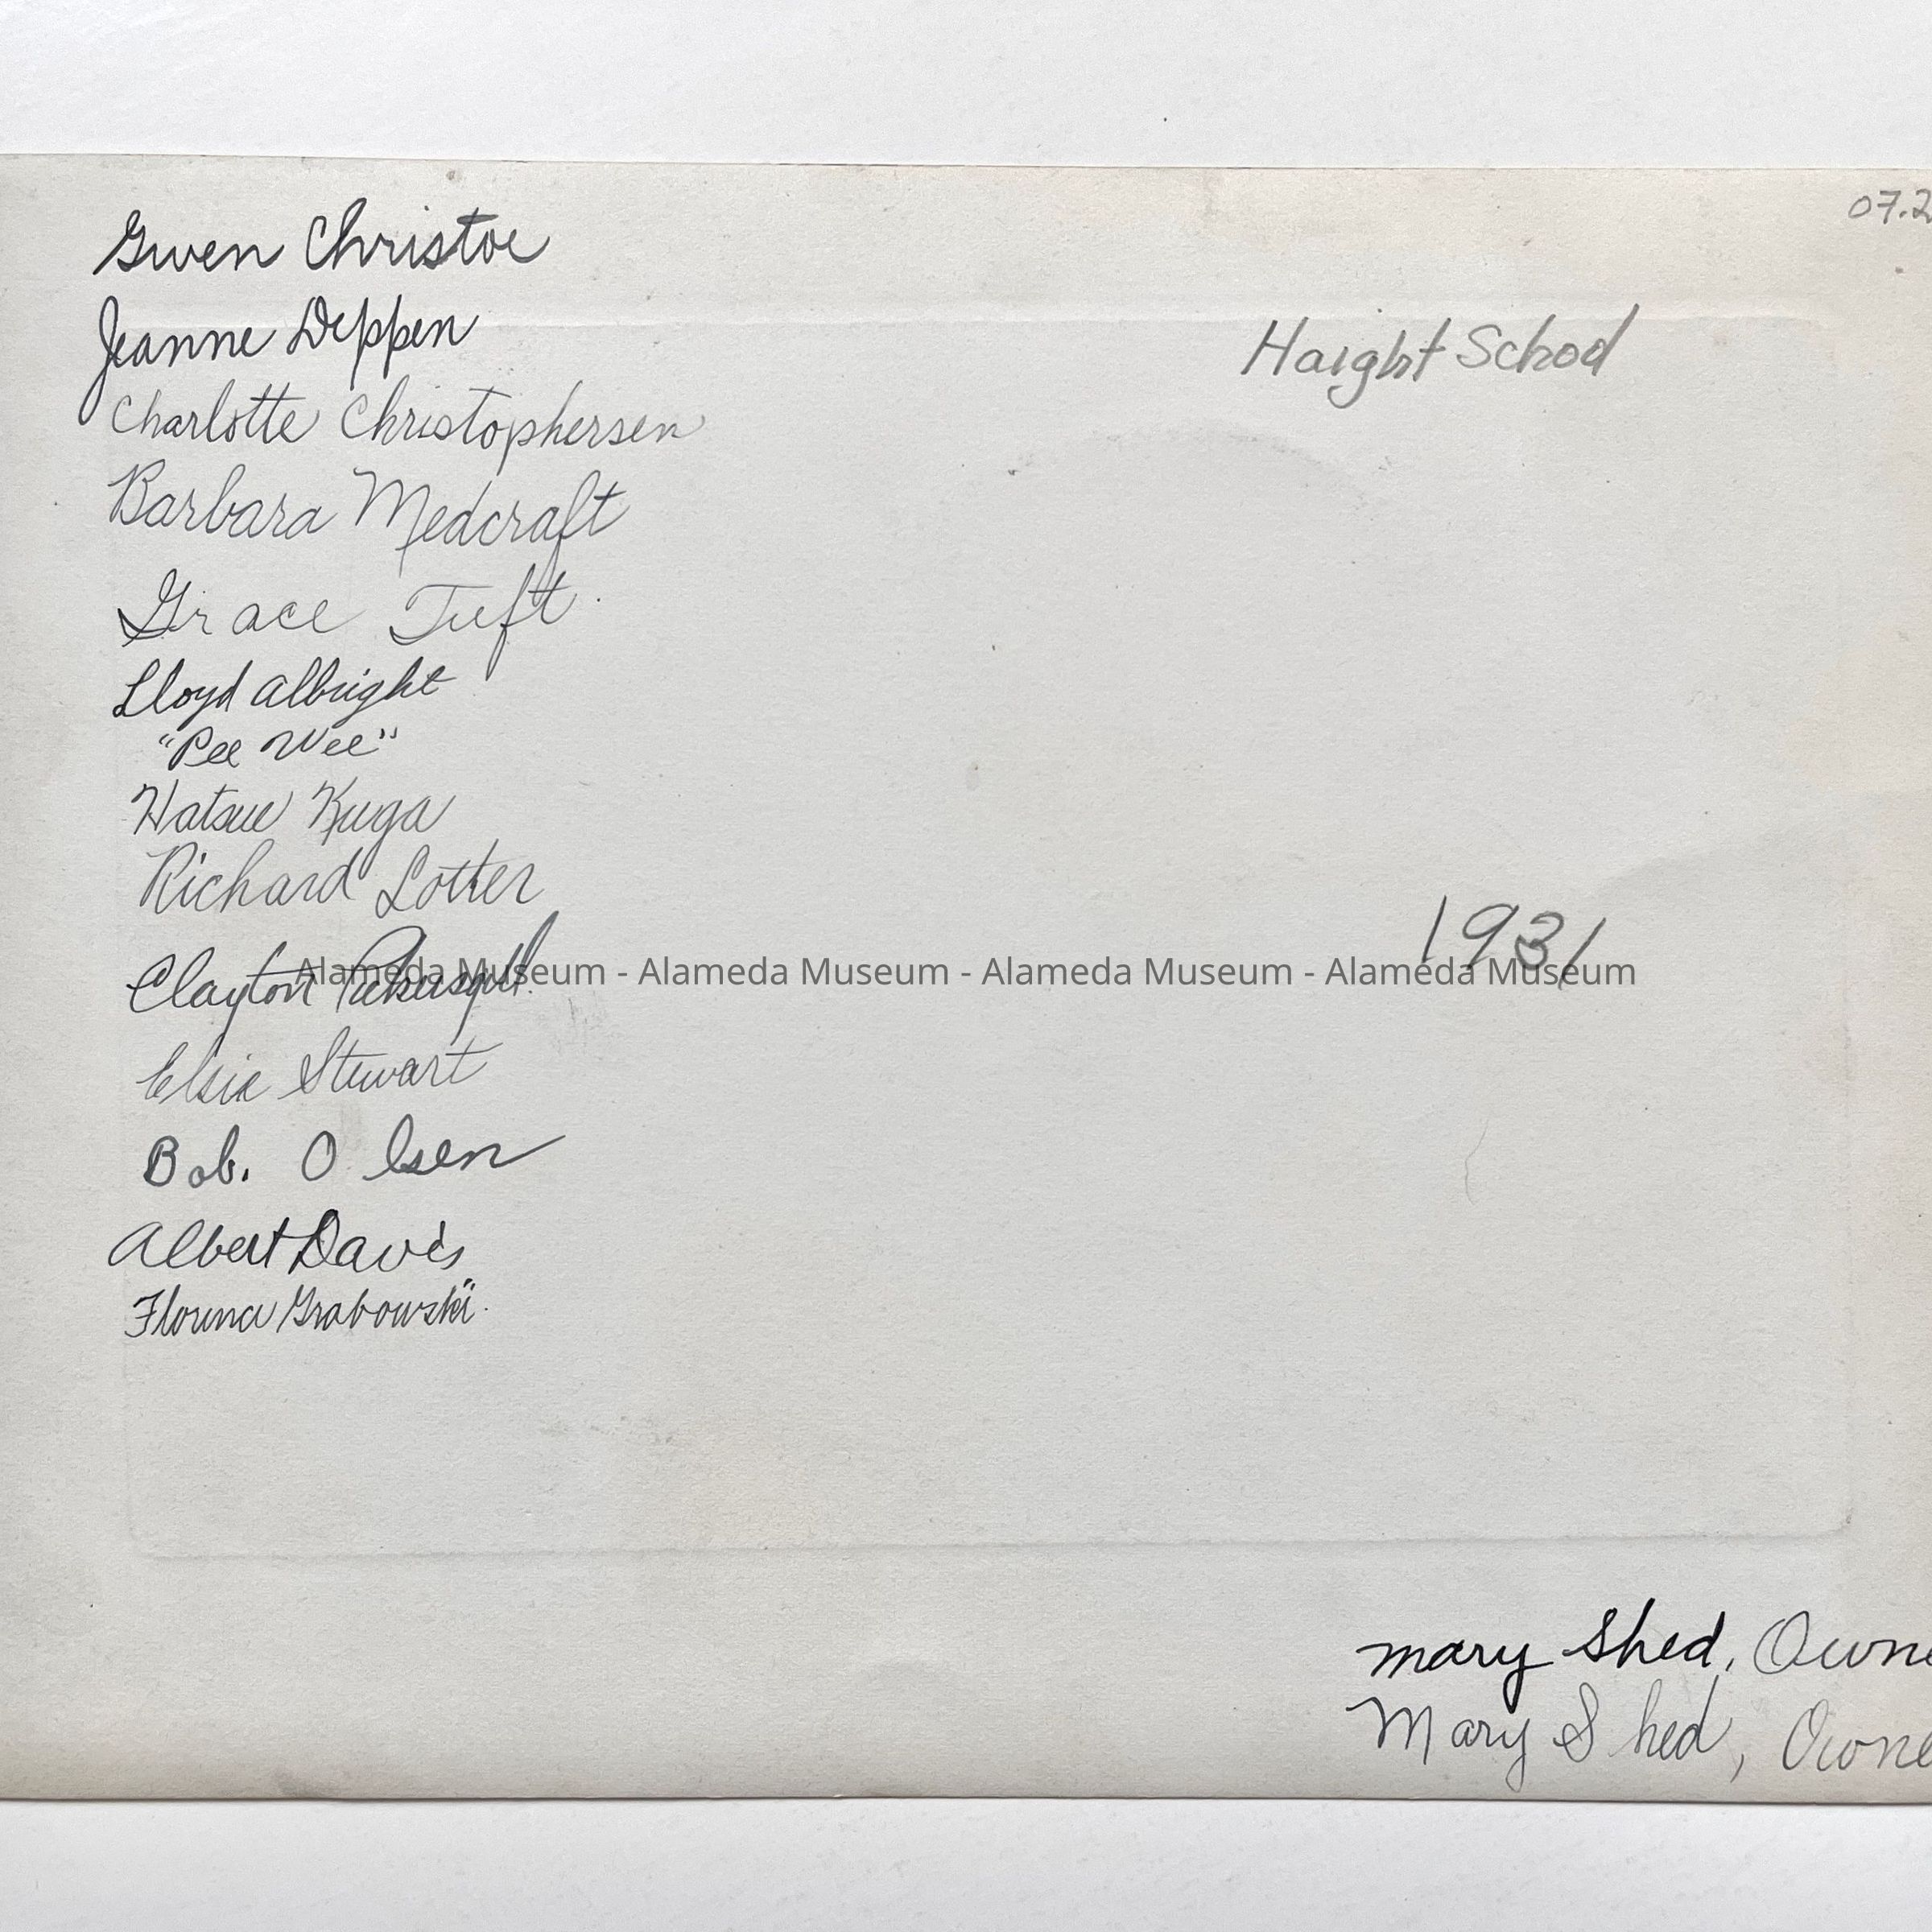 07.2
Gwen Christoe
Jeanne Deppen
Haight School
Charlotte Christophersen
Barbara Medcraft
Grace Tuft.
Lloyd Albright
"Pee Wee"
Hatsue Kuga
Richard Lotter
1931
Clayton
Alameda Museum - Alameda Museum - Alameda Museum - Alameda Museum
Elsie Stewart
Bob. Olsen
Albert Davis
Florence Grabowski.
Mary Shed, Owne
Mary Shed, Owne